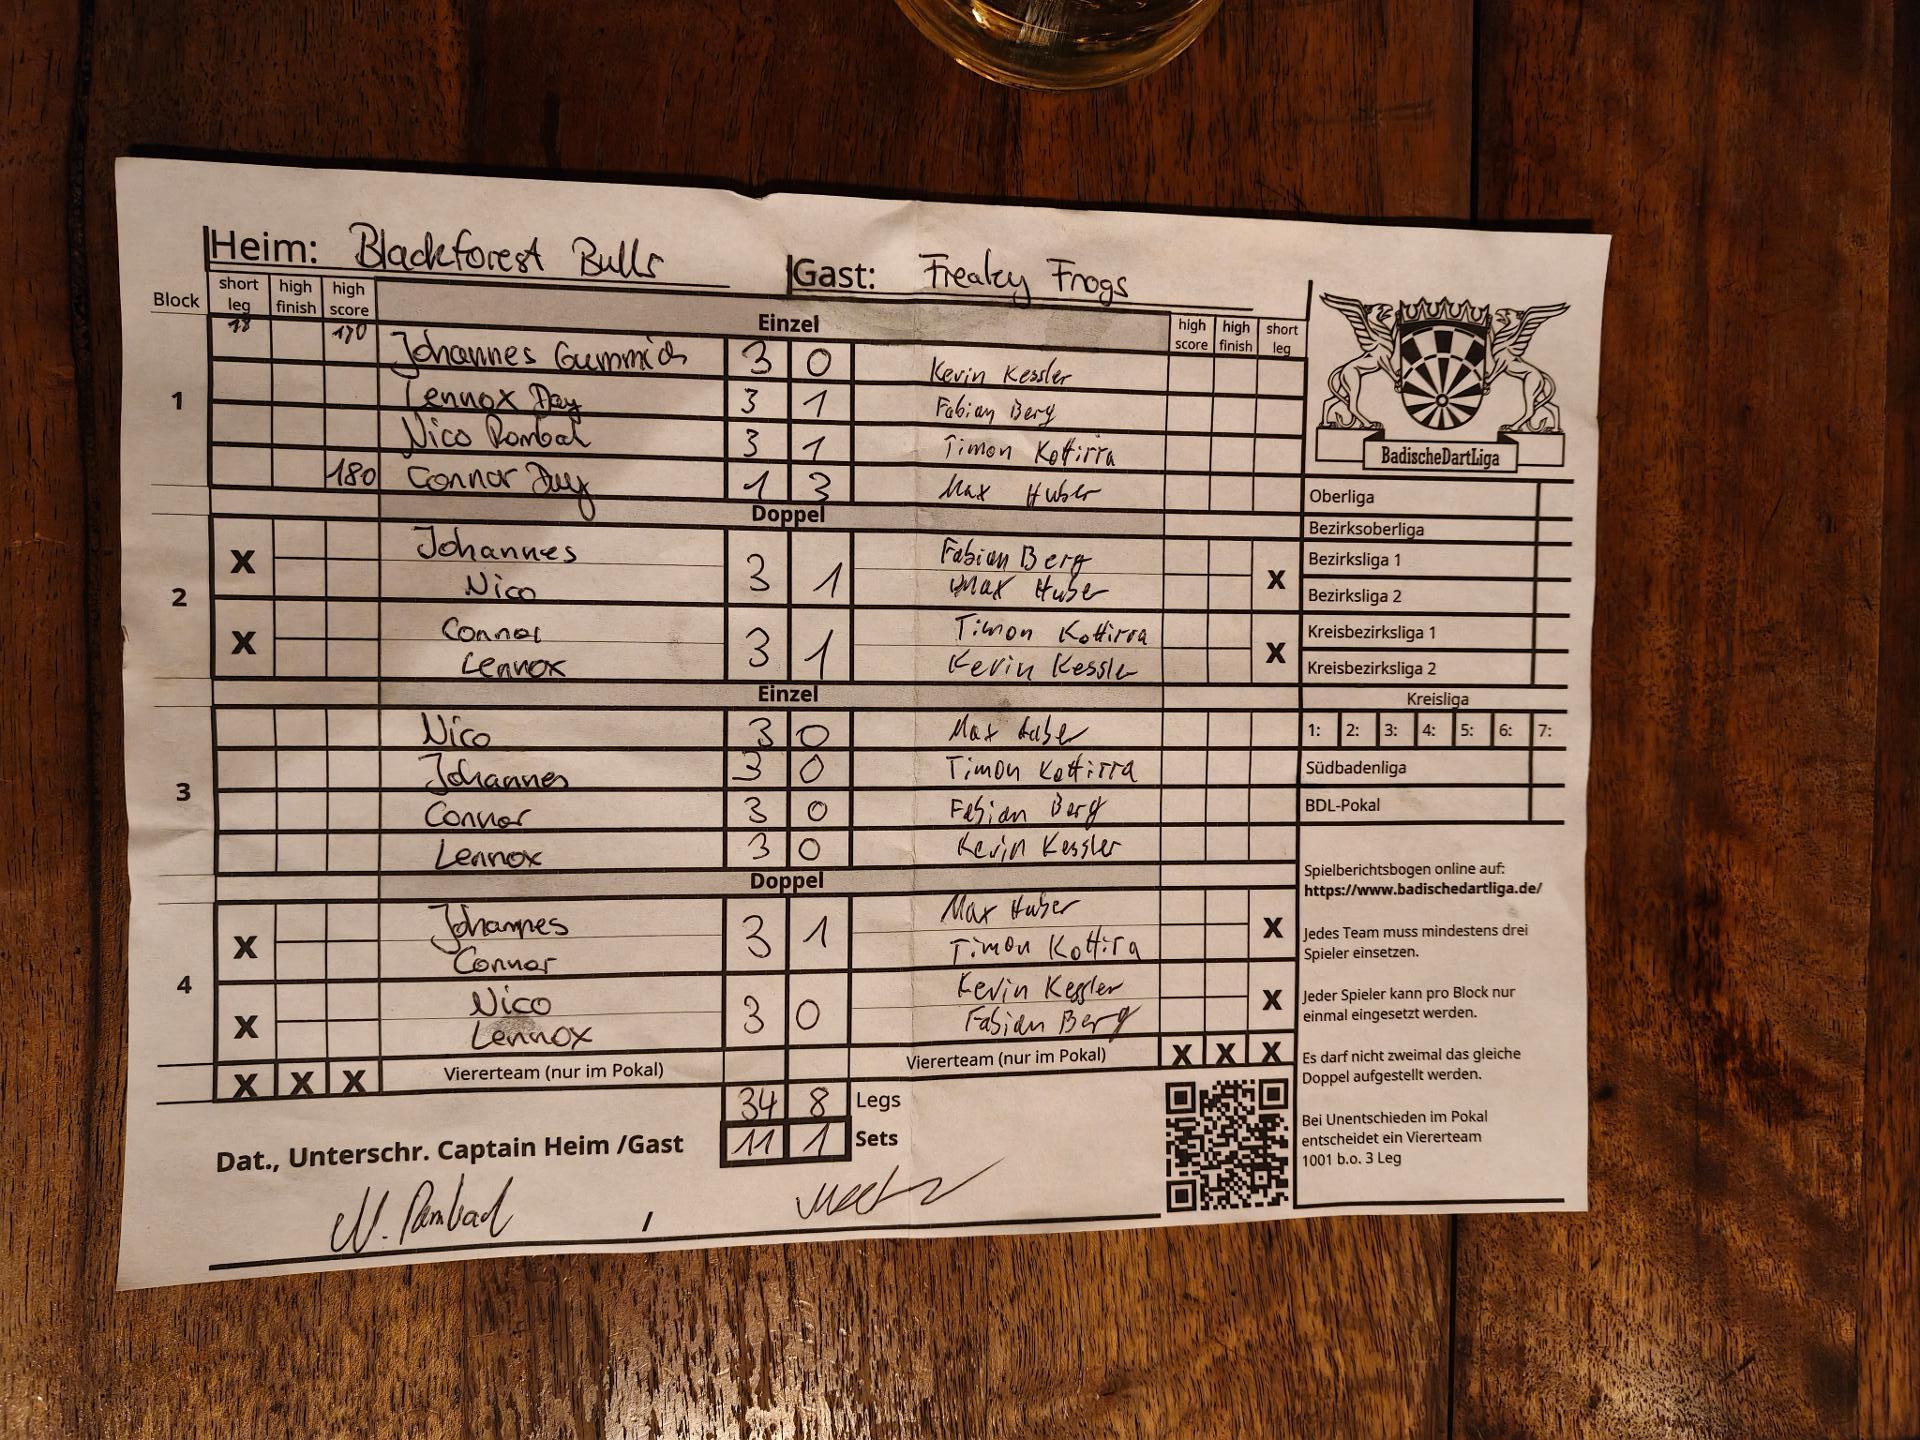 Heim: Blackforest Bulls Gast: Freaky Frogs
Block short leg high finish high score Einzel high score high finish short leg
1
18 170 Johannes 3 0 Kevin Kessler
Lennox Day 3 1 Fabian Berg
Nico 3 1 Timon Kottirra
180 Connor Day 1 3 Max Huber
Doppel
2
X Johannes 3 1 Fabian Berg X
Nico Max Huber
X Connor 3 1 Timon Kottirra X
Lennox Kevin Kessler
Einzel
3
Nico 3 0 Max Huber
Johannes 3 0 Timon Kottirra
Connor 3 0 Fabian Berg
Lennox 3 0 Kevin Kessler
Doppel
4
X Johannes 3 1 Max Huber X
Connor Timon Kottira
X Nico 3 0 Kevin Kessler X
Lennox Fabian Berg
X X X Viererteam (nur im Pokal) Viererteam (nur im Pokal) X X X
34 8 Legs
11 1 Sets
Dat., Unterschr. Captain Heim /Gast
N. /
BadischeDartLiga
Oberliga
Bezirksoberliga
Bezirksliga 1
Bezirksliga 2
Kreisbezirksliga 1
Kreisbezirksliga 2
Kreisliga
1: 2: 3: 4: 5: 6: 7:
Südbadenliga
BDL-Pokal
Spielberichtsbogen online auf:
https://www.badischedartliga.de/
Jedes Team muss mindestens drei
Spieler einsetzen.
Jeder Spieler kann pro Block nur
einmal eingesetzt werden.
Es darf nicht zweimal das gleiche
Doppel aufgestellt werden.
Bei Unentschieden im Pokal
entscheidet ein Viererteam
1001 b.o. 3 Leg